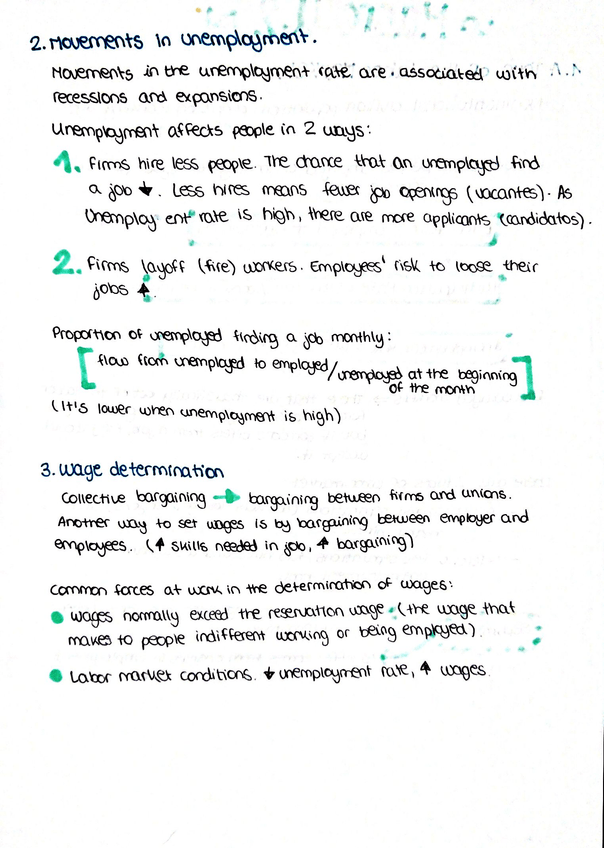 2. Movements in unemployment.
Movements in the unemployment rate are associated with
recessions and expansions.
Unemployment affects people in 2 ways:
1. Firms hire less people. The chance that an unemployed find
a job ↓. Less hires means fewer job openings (vacantes). As
Unemploy ent rate is high, there are more applicants (candidatos).
2. Firms layoff (fire) workers. Employees' risk to loose their
jobs ↑.
Proportion of unemployed finding a job monthly:
[flow from unemployed to employed/unemployed at the beginning
of the month]
(It's lower when unemployment is high)
3. Wage determination
Collective bargaining → bargaining between firms and unions.
Another way to set wages is by bargaining between employer and
employees. (↑ skills needed in job, ↑ bargaining)
Common forces at work in the determination of wages:
• Wages normally exceed the reservation wage (the wage that
makes to people indifferent working or being employed).
• Labor market conditions. ↓ unemployment rate, ↑ wages.